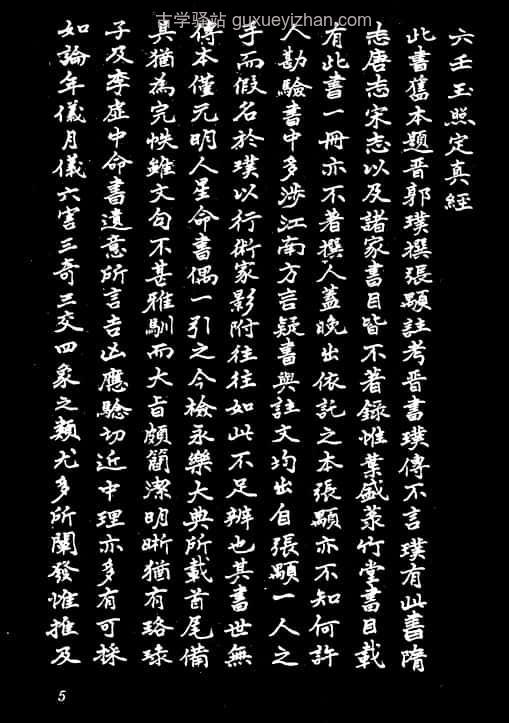 古学驿站 guxueyizhan.com
六壬玉照定真經
此書舊本題晋郭璞撰張顒註考晋書璞傳不言璞有此書隋
志唐志宋志以及諸家書目皆不著録惟葉盛菉竹堂書目載
有此書一冊亦不著撰人蓋晚出依託之本張顒亦不知何許
人勘驗書中多涉江南方言疑書與註文均出自張顒一人之
手而假名於璞以行術家影附往往如此不足辨也其書世無
傳本僅元明人星命書偶一引之今檢永樂大典所載首尾備
具猶為完帙雖文句不甚雅馴而大旨頗簡潔明晰猶有珞琭
子及李虚中命書遺意所言吉凶應驗切近中理亦多有可採
如論年儀月儀六害三奇三交四象之類尤多所闡發惟推及
5